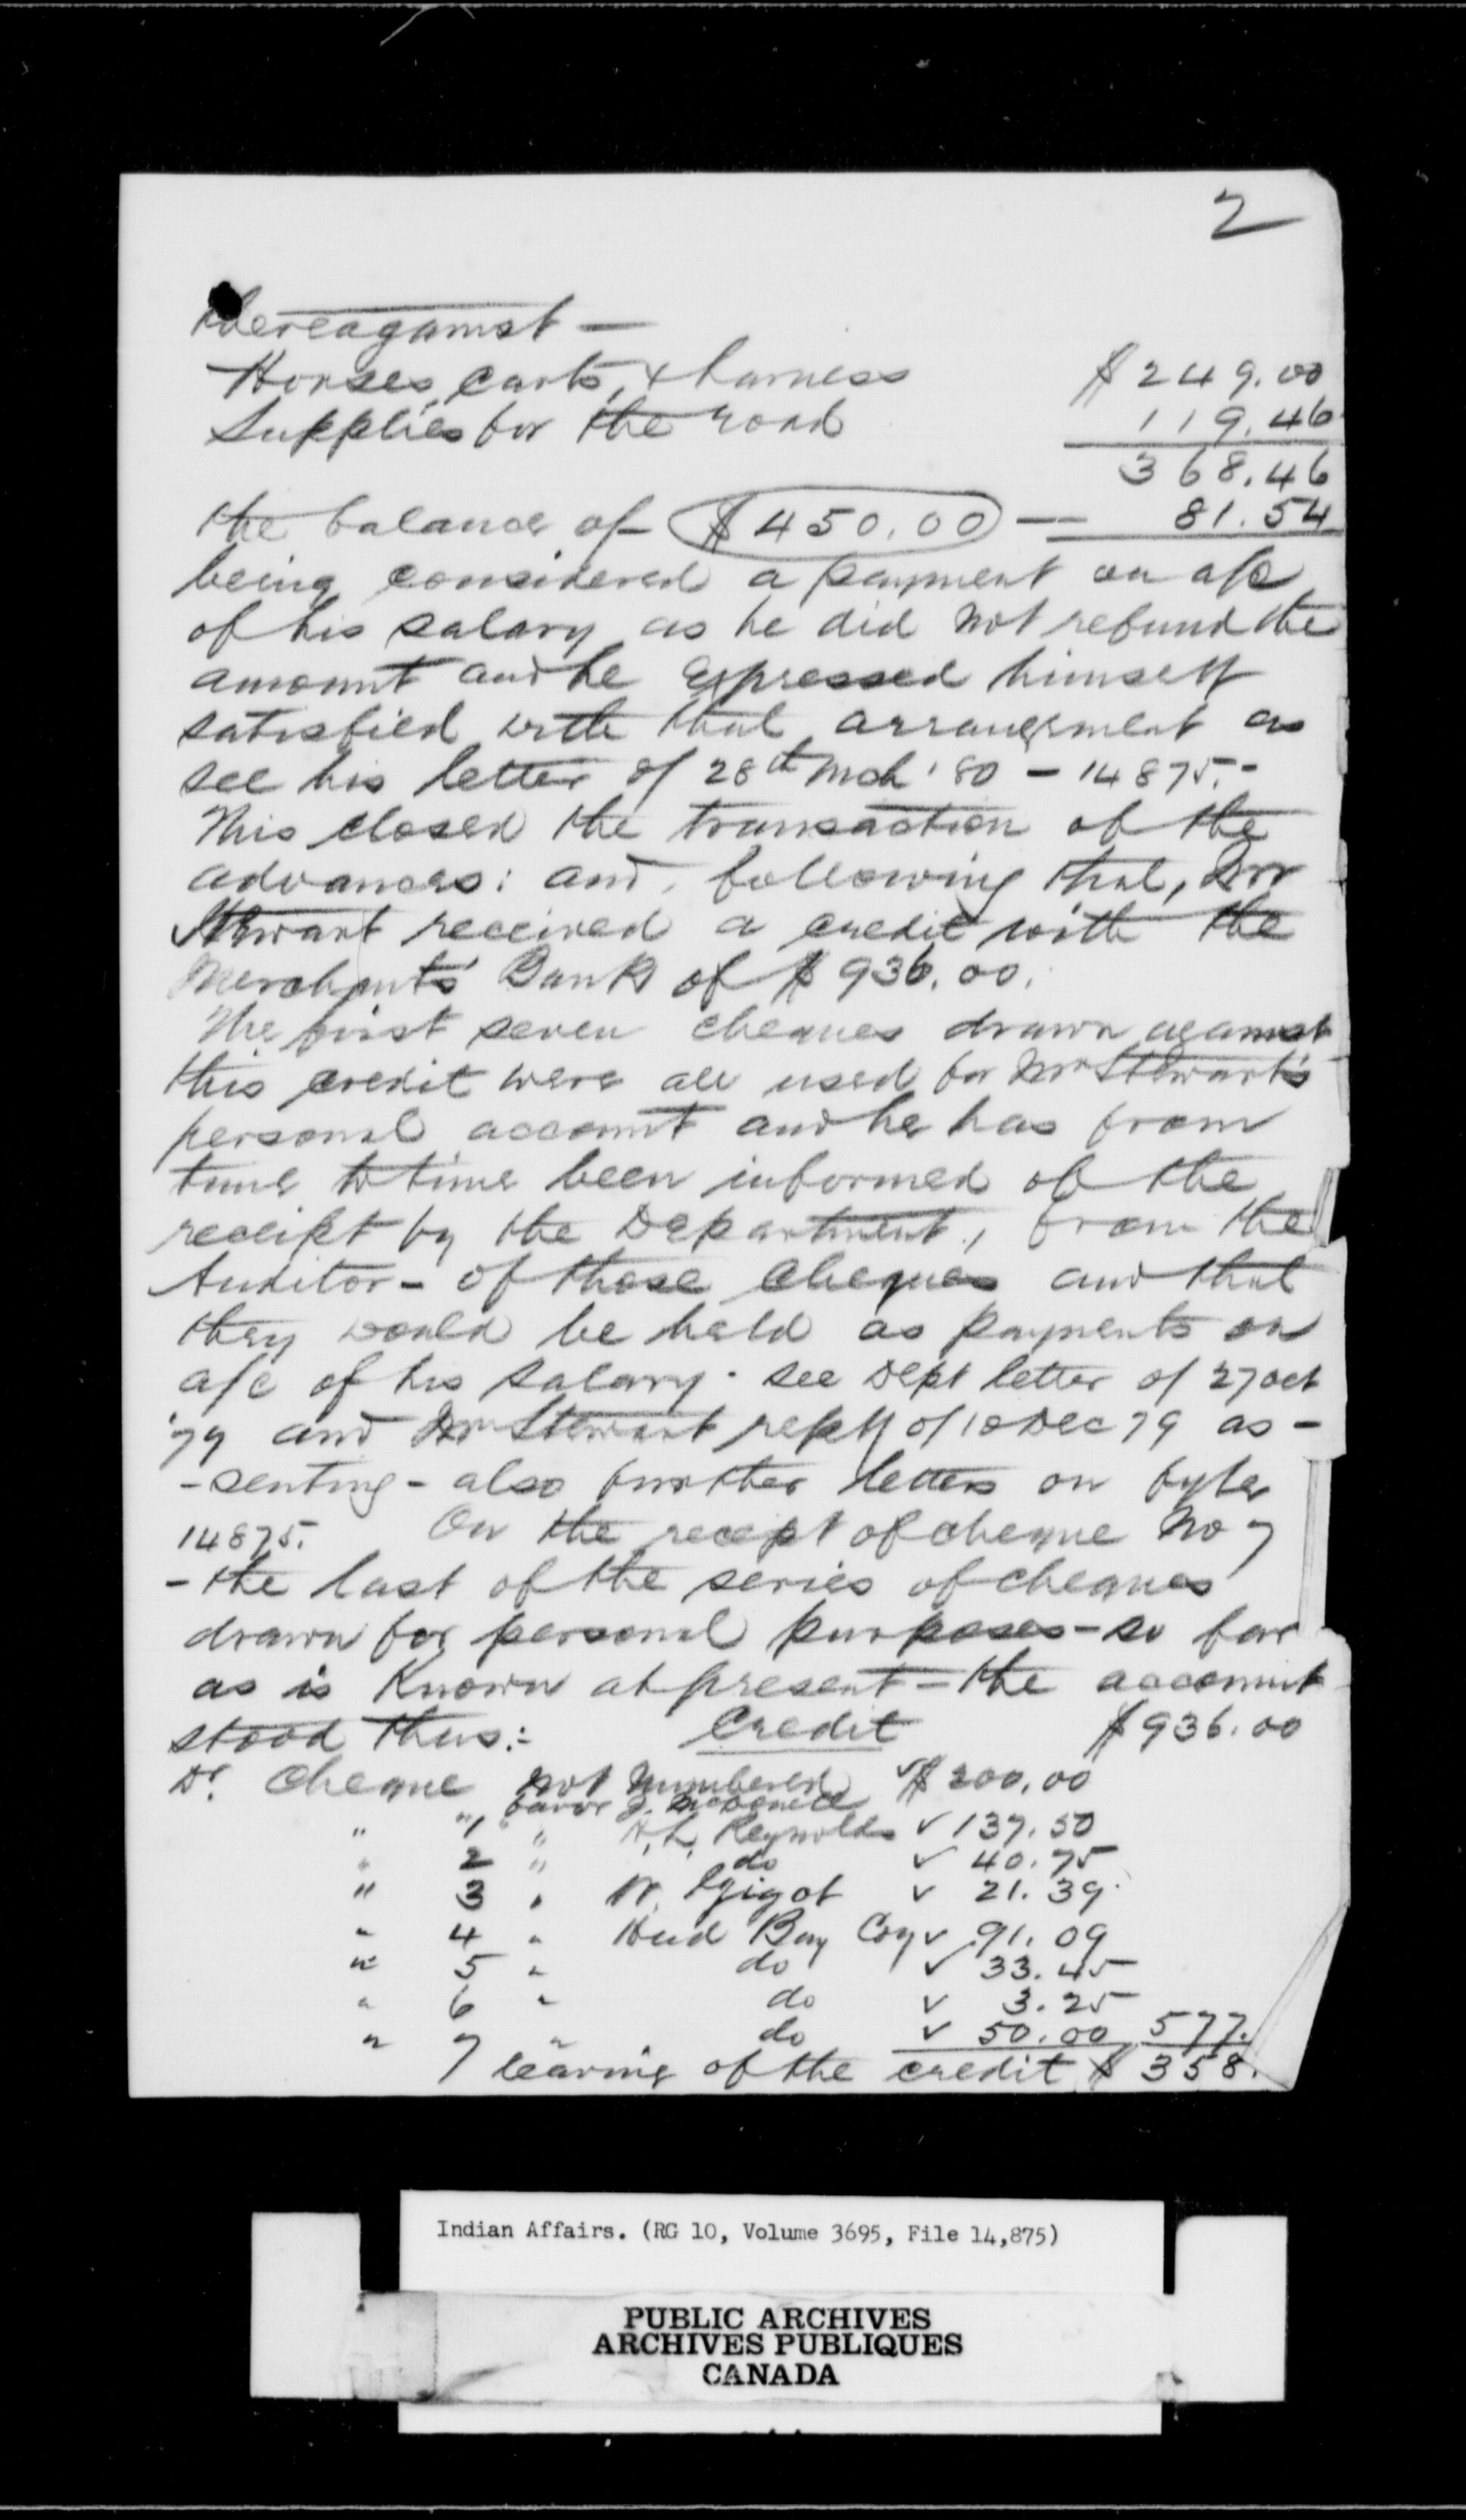 2
thereagainst —
Horses, carts, & harness $249.00
Supplies for the road 119.46
368.46
the balance of $450.00 — 81.54
being considered a payment on a/c
of his salary as he did not refund the
amount and he expressed himself
satisfied with that arrangement as
see his letter of 28th Mch '80 - 14875.-
This closed the transaction of the
advances: and, following that, Mr
Stewart received a credit with the
Merchants' Bank of $936.00.
The first seven cheques drawn against
this credit were all used for Mr Stewart's
personal account and he has from
time to time been informed of the
receipt by the Department, from the
Auditor - of those cheques and that
they would be held as payments on
a/c of his salary. see Dept letter of 27 Oct
'79 and Mr Stewart reply of 10 Dec 79 as -
- senting - also further letters on fyle
14875. On the receipt of cheque No 7
- the last of the series of cheques
drawn for personal purposes - so far
as is known at present - the account
stood thus:- Credit $936.00
Dr. Cheque not numbered ✓ $200.00
favor J. McDonell
" " 1 " H.L. Reynolds ✓ 137.50
" 2 " do ✓ 40.75
" 3 " W. Gigot ✓ 21.39
" 4 " Hud Bay Coy ✓ 91.09
" 5 " do ✓ 33.45
" 6 " do ✓ 3.25
" 7 " do ✓ 50.00 577.
leaving of the credit $358.
Indian Affairs. (RG 10, Volume 3695, File 14,875)
PUBLIC ARCHIVES
ARCHIVES PUBLIQUES
CANADA